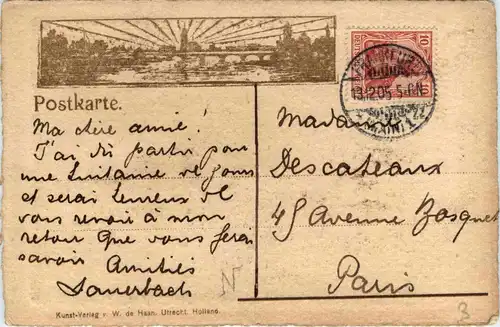 Postkarte.
Ma chère amie!
J'ai dû partir pour
une huitaine de jours
et serai heureux de
vous revoir à mon
retour que vous ferai
savoir Amitiés
Sauerbach
Madame
Descateaux
45 Avenue Bosquet
Paris
10
13.12.05 5-6N
(MAIN)
Kunst-Verlag v. W. de Haan. Utrecht. Holland.
N
3